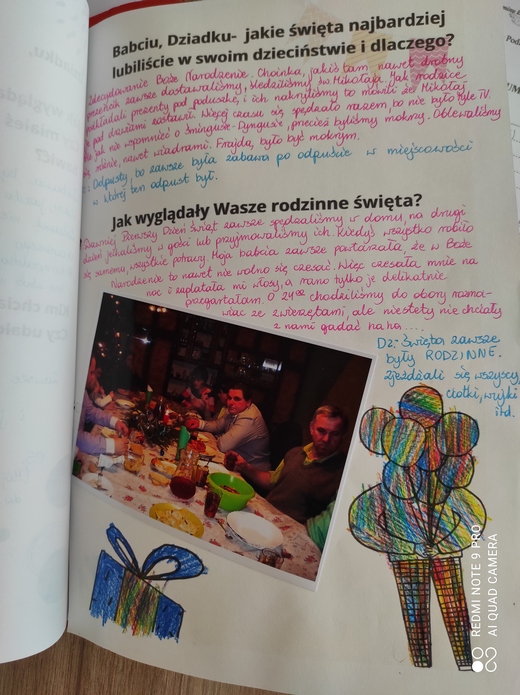 Babciu, Dziadku- jakie święta najbardziej
lubiliście w swoim dzieciństwie i dlaczego?
Zdecydowanie Boże Narodzenie. Choinka, jakiś tam nawet drobny
zawsze dostawaliśmy, śledziliśmy św. Mikołaja. Jak rodzice
podkładali prezenty pod poduszkę, i ich nakryliśmy to mówili że Mikołaj
pod drzwiami zostawił. Więcej czasu się spędzało razem, bo nie było tyle TV.
jak nie wspomnieć o Śmingusie-Dyngusie, przecież byliśmy mokrzy. Oblewaliśmy
się nawet wiadrami. Frajdą było być mokrym.
Odpusty, bo zawsze była zabawa po odpuście w miejscowości
w której ten odpust był.
Jak wyglądały Wasze rodzinne święta?
Dawniej Pierwszy Dzień Świąt zawsze spędzaliśmy w domu, na drugi
dzień jechaliśmy w gości lub przyjmowaliśmy ich. Kiedyś wszystko robiło
się samemu, wszystkie potrawy. Moja babcia zawsze powtarzała, że w Boże
Narodzenie to nawet nie wolno się czesać. Więc czesała mnie na
noc i zaplatała mi włosy, a rano tylko je delikatnie
przygartałam. O 24⁰⁰ chodziliśmy do obory rozma-
wiać ze zwierzętami, ale niestety nie chciały
z nami gadać ha ha....
Dz:- Święta zawsze
były RODZINNE.
Zjeżdżali się wszyscy
ciotki, wujki
itd.
REDMI NOTE 9 PRO
AI QUAD CAMERA